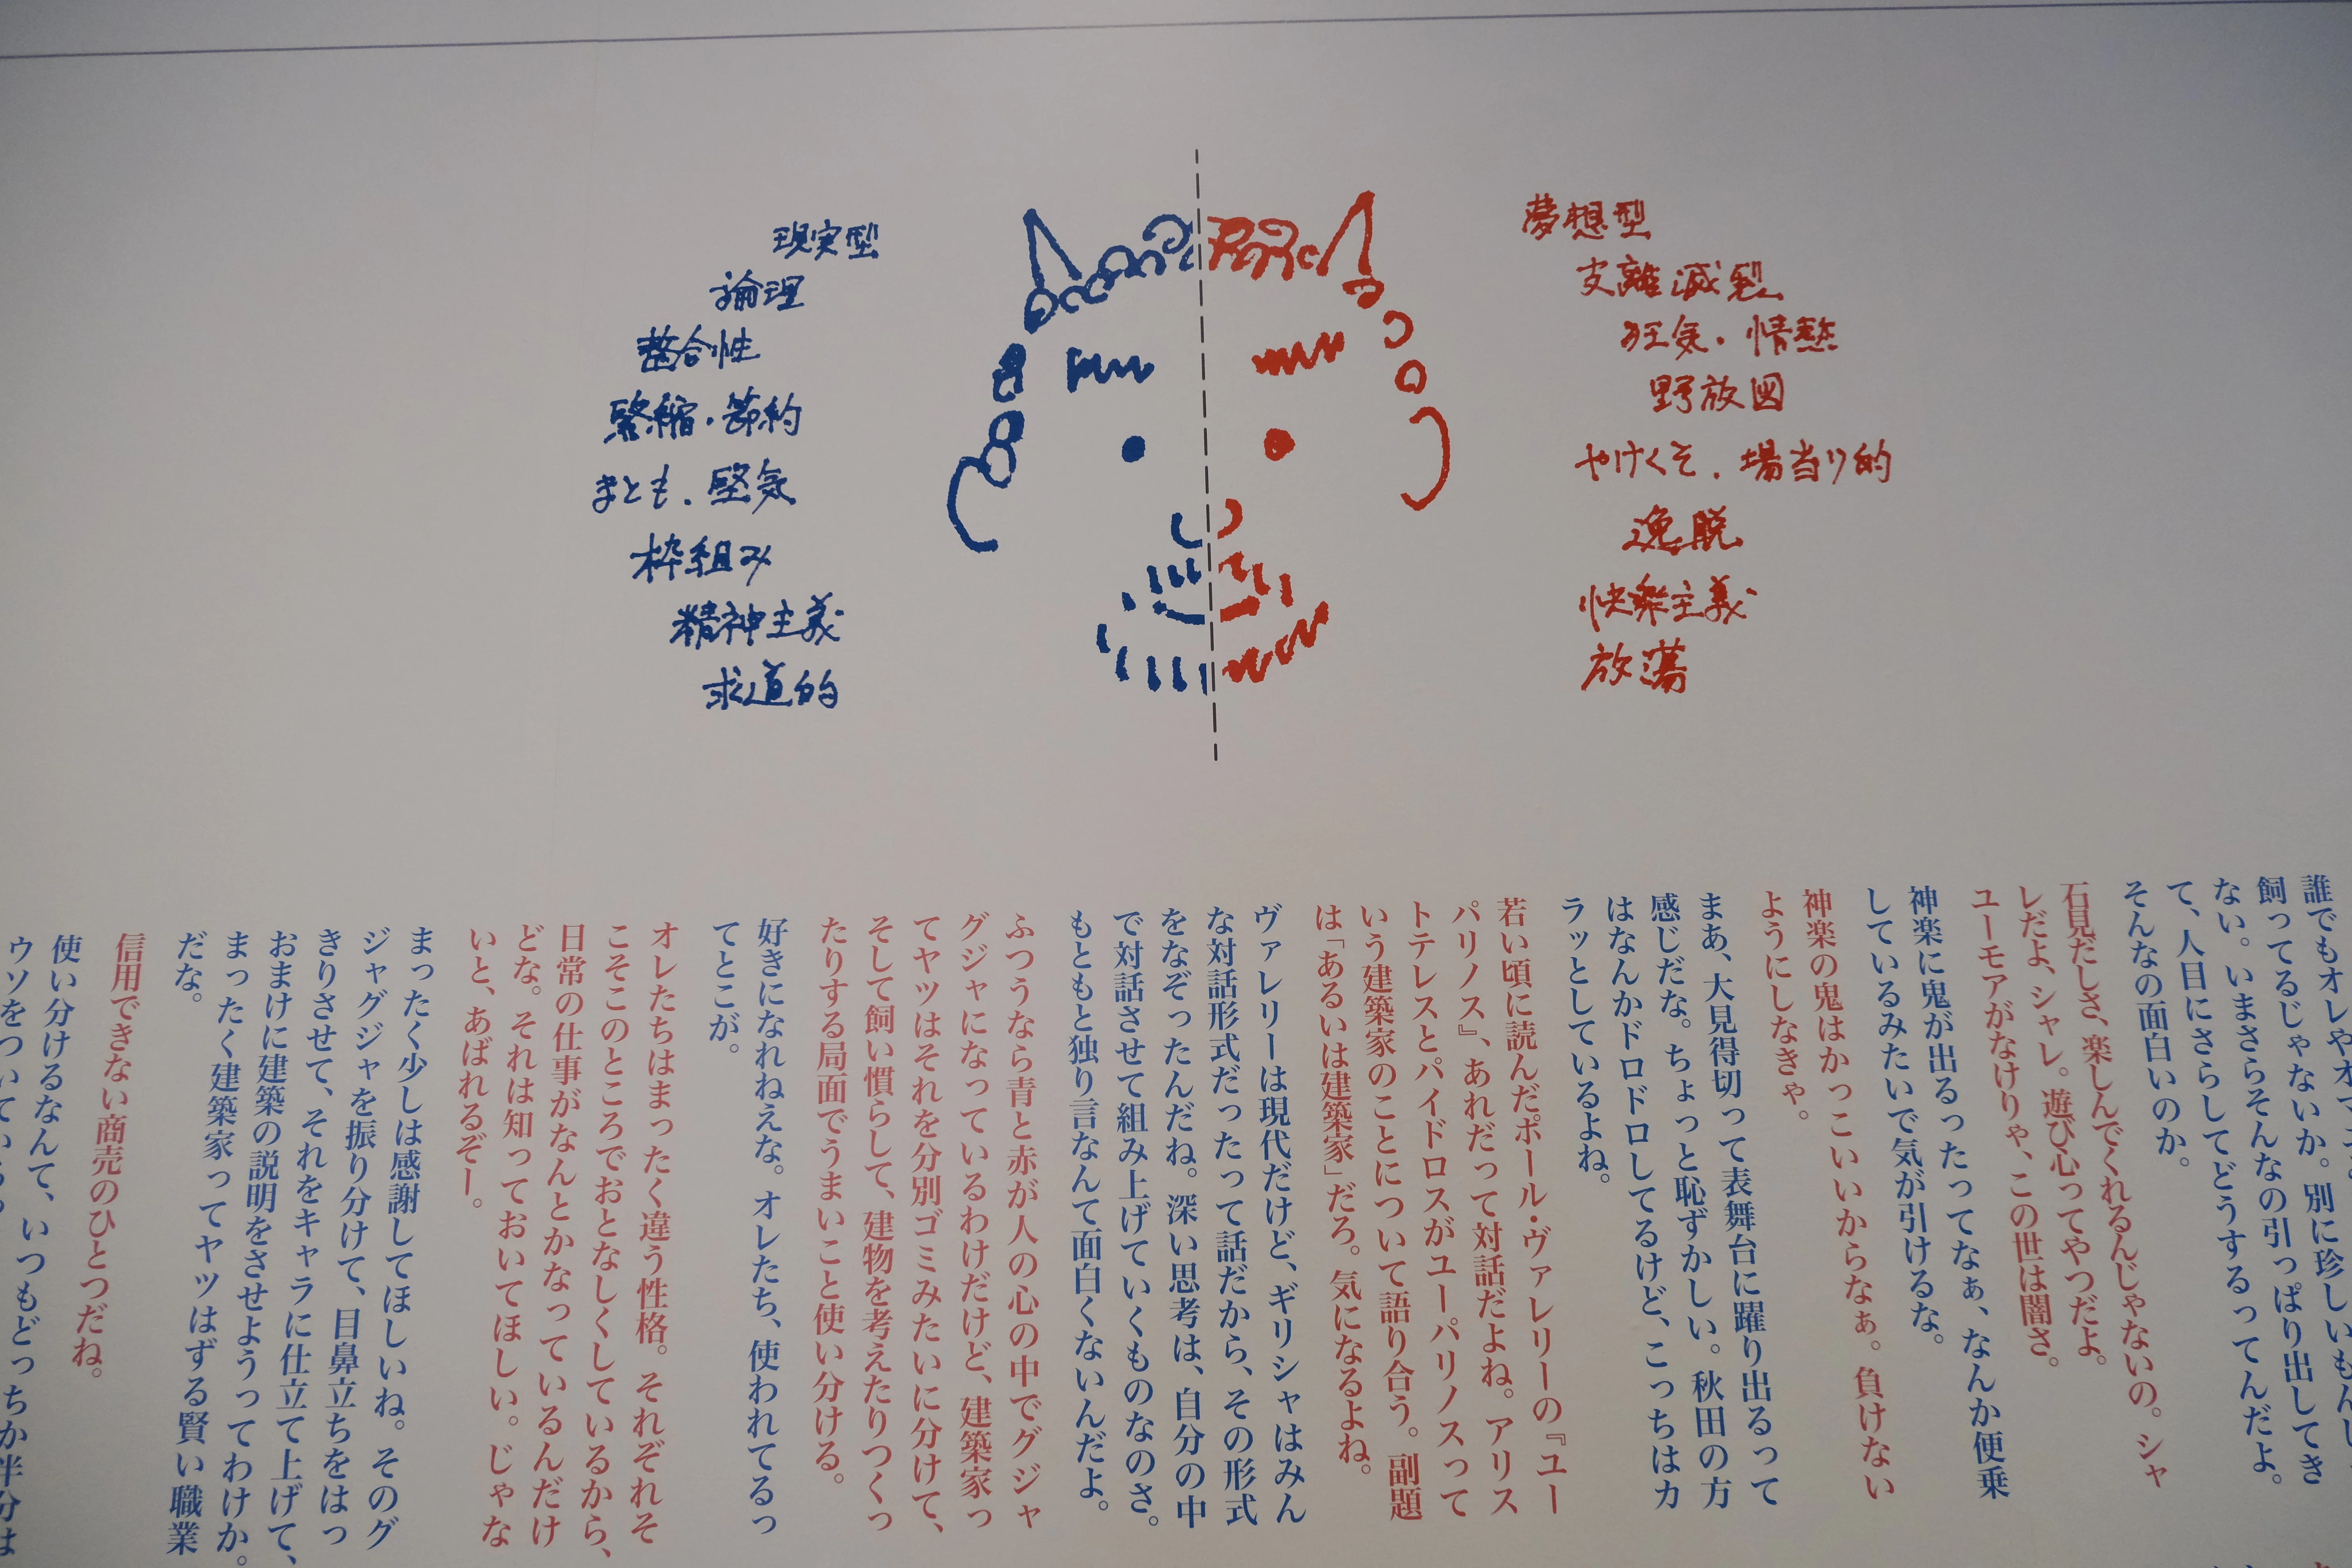 現実型
論理
整合性
緊縮・節約
まとも・堅気
枠組み
精神主義
求道的
夢想型
支離滅裂
狂気・情慾
野放図
やけくそ・場当り的
逸脱
快楽主義
放蕩
誰でもオレやオマ
飼ってるじゃないか。別に珍しいもんじ
ない。いまさらそんなの引っぱり出してき
て、人目にさらしてどうするってんだよ。
そんなの面白いのか。
石見だしさ、楽しんでくれるんじゃないの。シャ
レだよ、シャレ。遊び心ってやつだよ。
ユーモアがなけりゃ、この世は闇さ。
神楽に鬼が出るったってなぁ、なんか便乗
しているみたいで気が引けるな。
神楽の鬼はかっこいいからなぁ。負けない
ようにしなきゃ。
まあ、大見得切って表舞台に躍り出るって
感じだな。ちょっと恥ずかしい。秋田の方
はなんかドロドロしてるけど、こっちはカ
ラッとしているよね。
若い頃に読んだポール・ヴァレリーの『ユー
パリノス』、あれだって対話だよね。アリス
トテレスとパイドロスがユーパリノスって
いう建築家のことについて語り合う。副題
は「あるいは建築家」だろ。気になるよね。
ヴァレリーは現代だけど、ギリシャはみん
な対話形式だったって話だから、その形式
をなぞったんだね。深い思考は、自分の中
で対話させて組み上げていくものなのさ。
もともと独り言なんて面白くないんだよ。
ふつうなら青と赤が人の心の中でグジャ
グジャになっているわけだけど、建築家っ
てヤツはそれを分別ゴミみたいに分けて、
そして飼い慣らして、建物を考えたりつくっ
たりする局面でうまいこと使い分ける。
好きになれねえな。オレたち、使われてるっ
てとこが。
オレたちはまったく違う性格。それぞれそ
こそこのところでおとなしくしているから、
日常の仕事がなんとかなっているんだけ
どな。それは知っておいてほしい。じゃな
いと、あばれるぞー。
まったく少しは感謝してほしいね。そのグ
ジャグジャを振り分けて、目鼻立ちをはっ
きりさせて、それをキャラに仕立て上げて、
おまけに建築の説明をさせようってわけか。
まったく建築家ってヤツはずる賢い職業
だな。
信用できない商売のひとつだね。
使い分けるなんて、いつもどっちか半分は
ウソをついてい